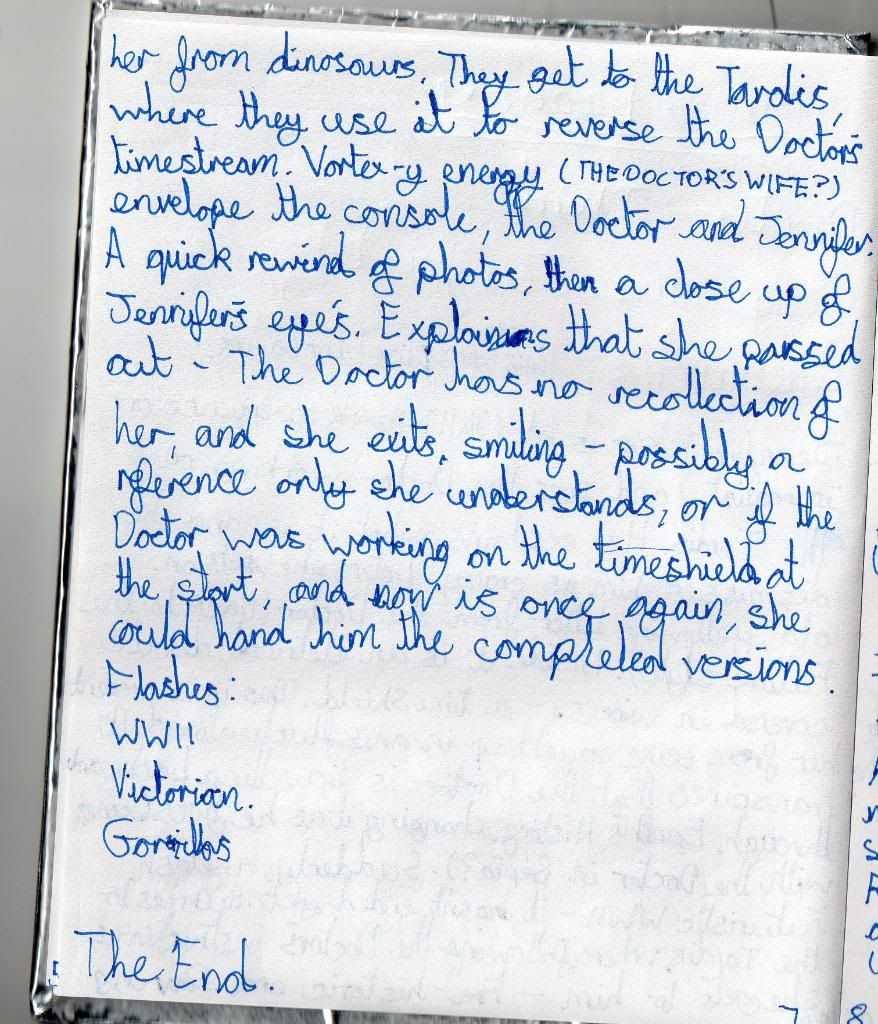 her from dinosours. They get to the Tardis,
where they use it to reverse the Doctor's
timestream. Vortex-y energy (THE DOCTOR'S WIFE?)
envelope the console, the Doctor and Jennifer.
A quick rewind of photos, then a close up of
Jennifer's eye's. Explains that she passed
out - The Doctor has no recollection of
her, and she exits, smiling - possibly a
reference only she understands, or if the
Doctor was working on the timeshield at
the start, and now is once again, she
could hand him the completed versions.
Flashes:
WWII
Victorian.
Gorillas
The End.
7
8